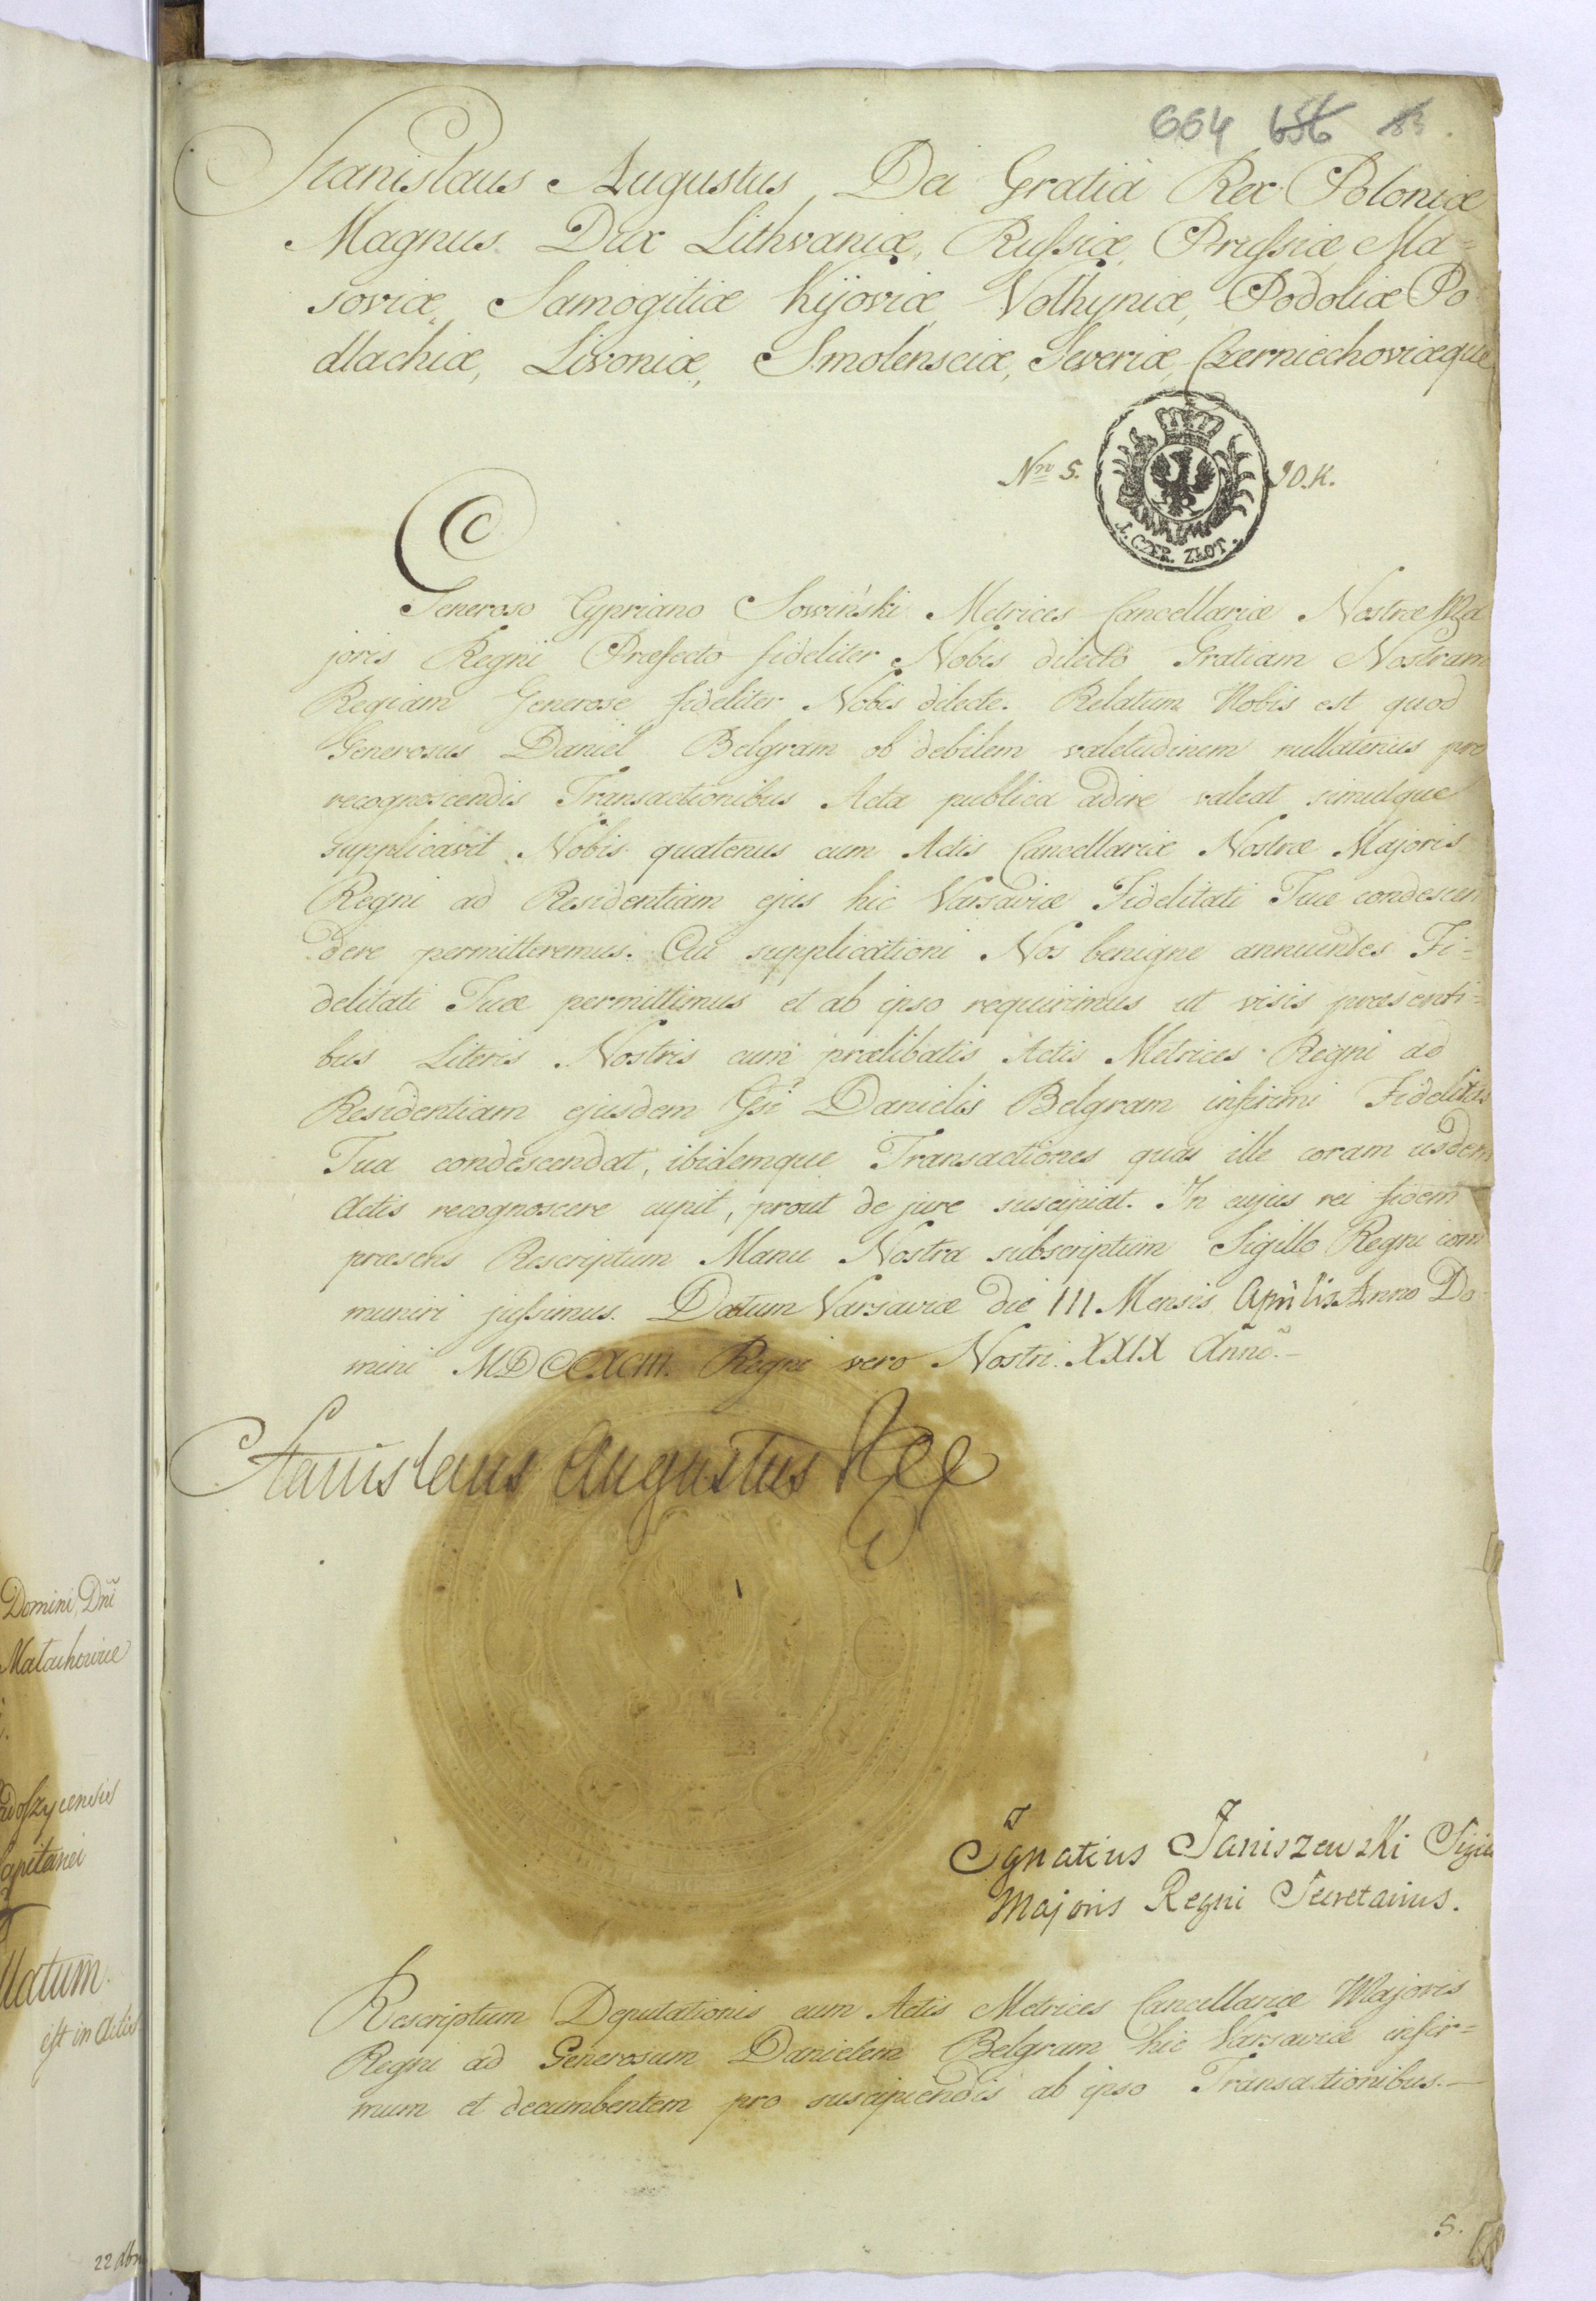 664 656 83.
Stanislaus Augustus Dei Gratiâ Rex Poloniæ
Magnus Dux Lithvaniæ, Rufsiæ, Prufsiæ, Ma=
soviæ, Samogitiæ Kijoviæ Volhyniæ, Podoliæ Po
dlachiæ, Livoniæ, Smolensciæ, Severiæ, Czerniechoviæque
Nro 5.
1. CZER. ZŁOT.
Generoso Cypriano Sowiński Metrices Cancellariæ Nostræ Ma
joris Regni Præfecto fideliter Nobis dilecto Gratiam Nostram
Regiam Generose fideliter Nobis dilecte. Relatum Nobis est quod
Generosus Daniel Belgram ob debilem valetudinem nullatenus pro
recognoscendis Transactionibus Acta publica adire valeat simulque
supplicavit Nobis quatenus cum Actis Cancellariæ Nostræ Majoris
Regni ad Residentiam ejus hic Varsaviæ Fidelitati Tuæ condescen
dere permitteremus. Cui supplicationi Nos benigne annuentes Fi=
delitati Tuæ permittimus et ab ipso requirimus ut visis præsenti=
bus Literis Nostris cum prælibatis Actis Metrices Regni ad
Residentiam ejusdem Gsi Danielis Belgram infirmi Fidelitas
Tua condescendat, ibidemque Transactiones quas ille coram iisdem
Actis recognoscere cupit, prout de jure suscipiat. In cujus rei fidem
præsens Rescriptum Manu Nostra subscriptum Sigillo Regni com
muniri jufsimus. Datum Varsaviæ die III Mensis Aprilis Anno Do
mini MDCCXCIII. Regni vero Nostri XXIX Anno.
Stanislaus Augustus Rex
Ignatius Janiszewski Sigi
Majoris Regni Secretarius.
Rescriptum Deputationis cum Actis Metrices Cancellariæ Majoris
Regni ad Generosum Danielem Belgram hic Varsaviæ infir=
mum et decumbentem pro suscipiendis ab ipso Transactionibus.
5.
Domini Dni
apitanei
llatum.
est in Actis